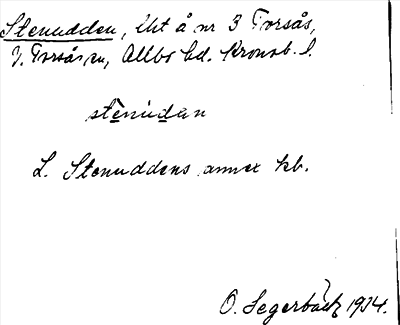 Stenudden, lht å nr 3 Torsås,
V. Torsås sn, Allbo hd. Kronob. l.
stenudan
L. Stenuddens annex kb.
O. Segerbäck 1934.